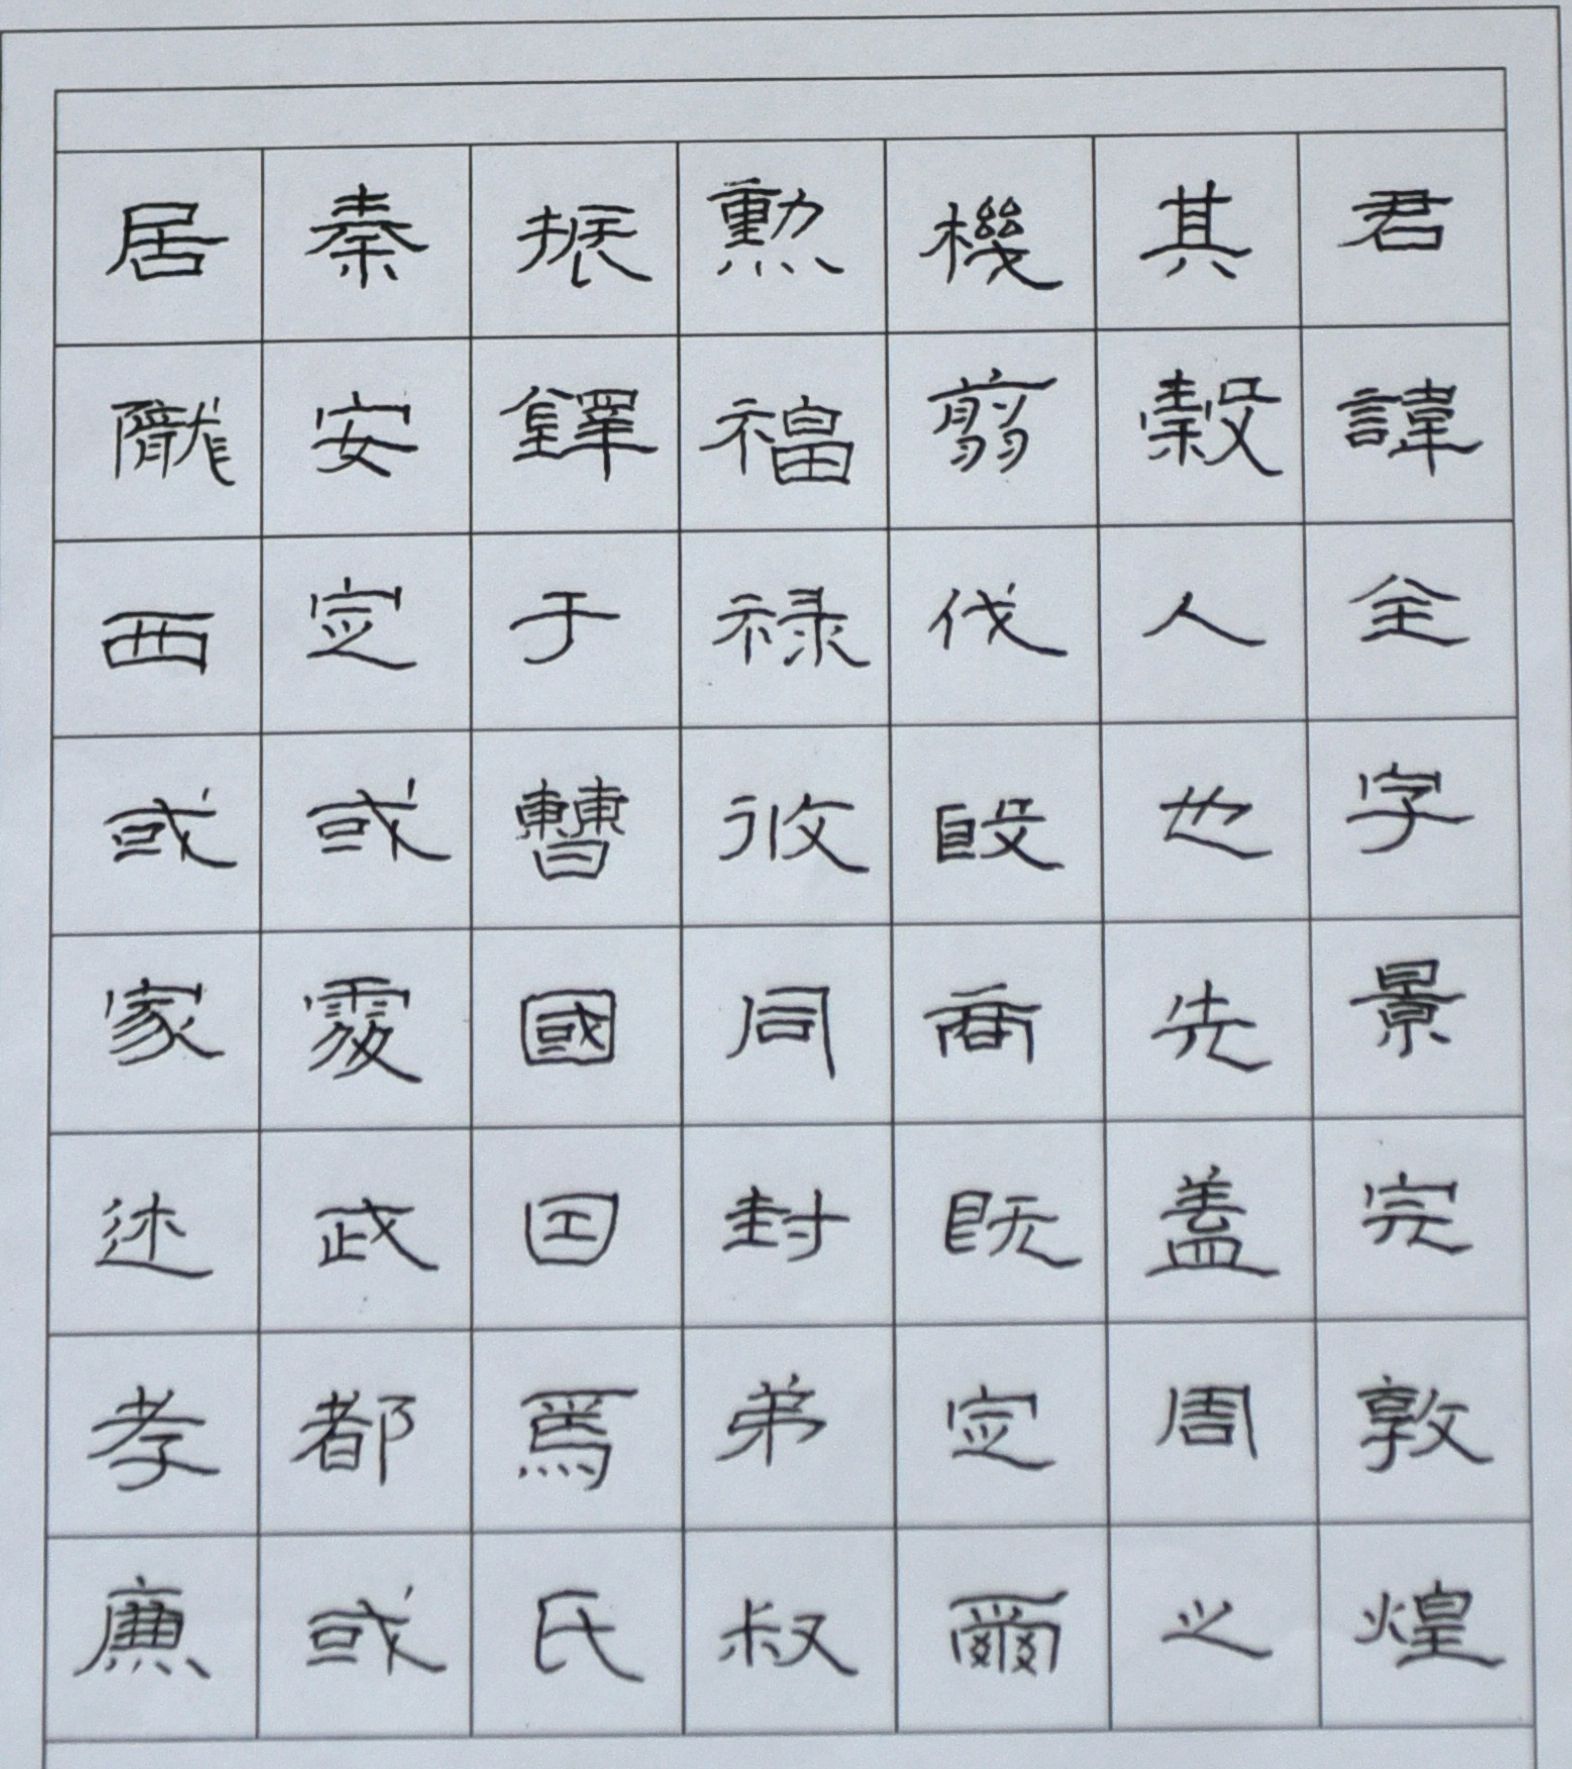 君諱全字景完敦煌
其穀人也先盖周之
機翦伐殷商既定爾
勲福禄攸同封弟叔
振鐸于曹國因焉氏
秦安定或處武都或
居隴西或家述孝廉